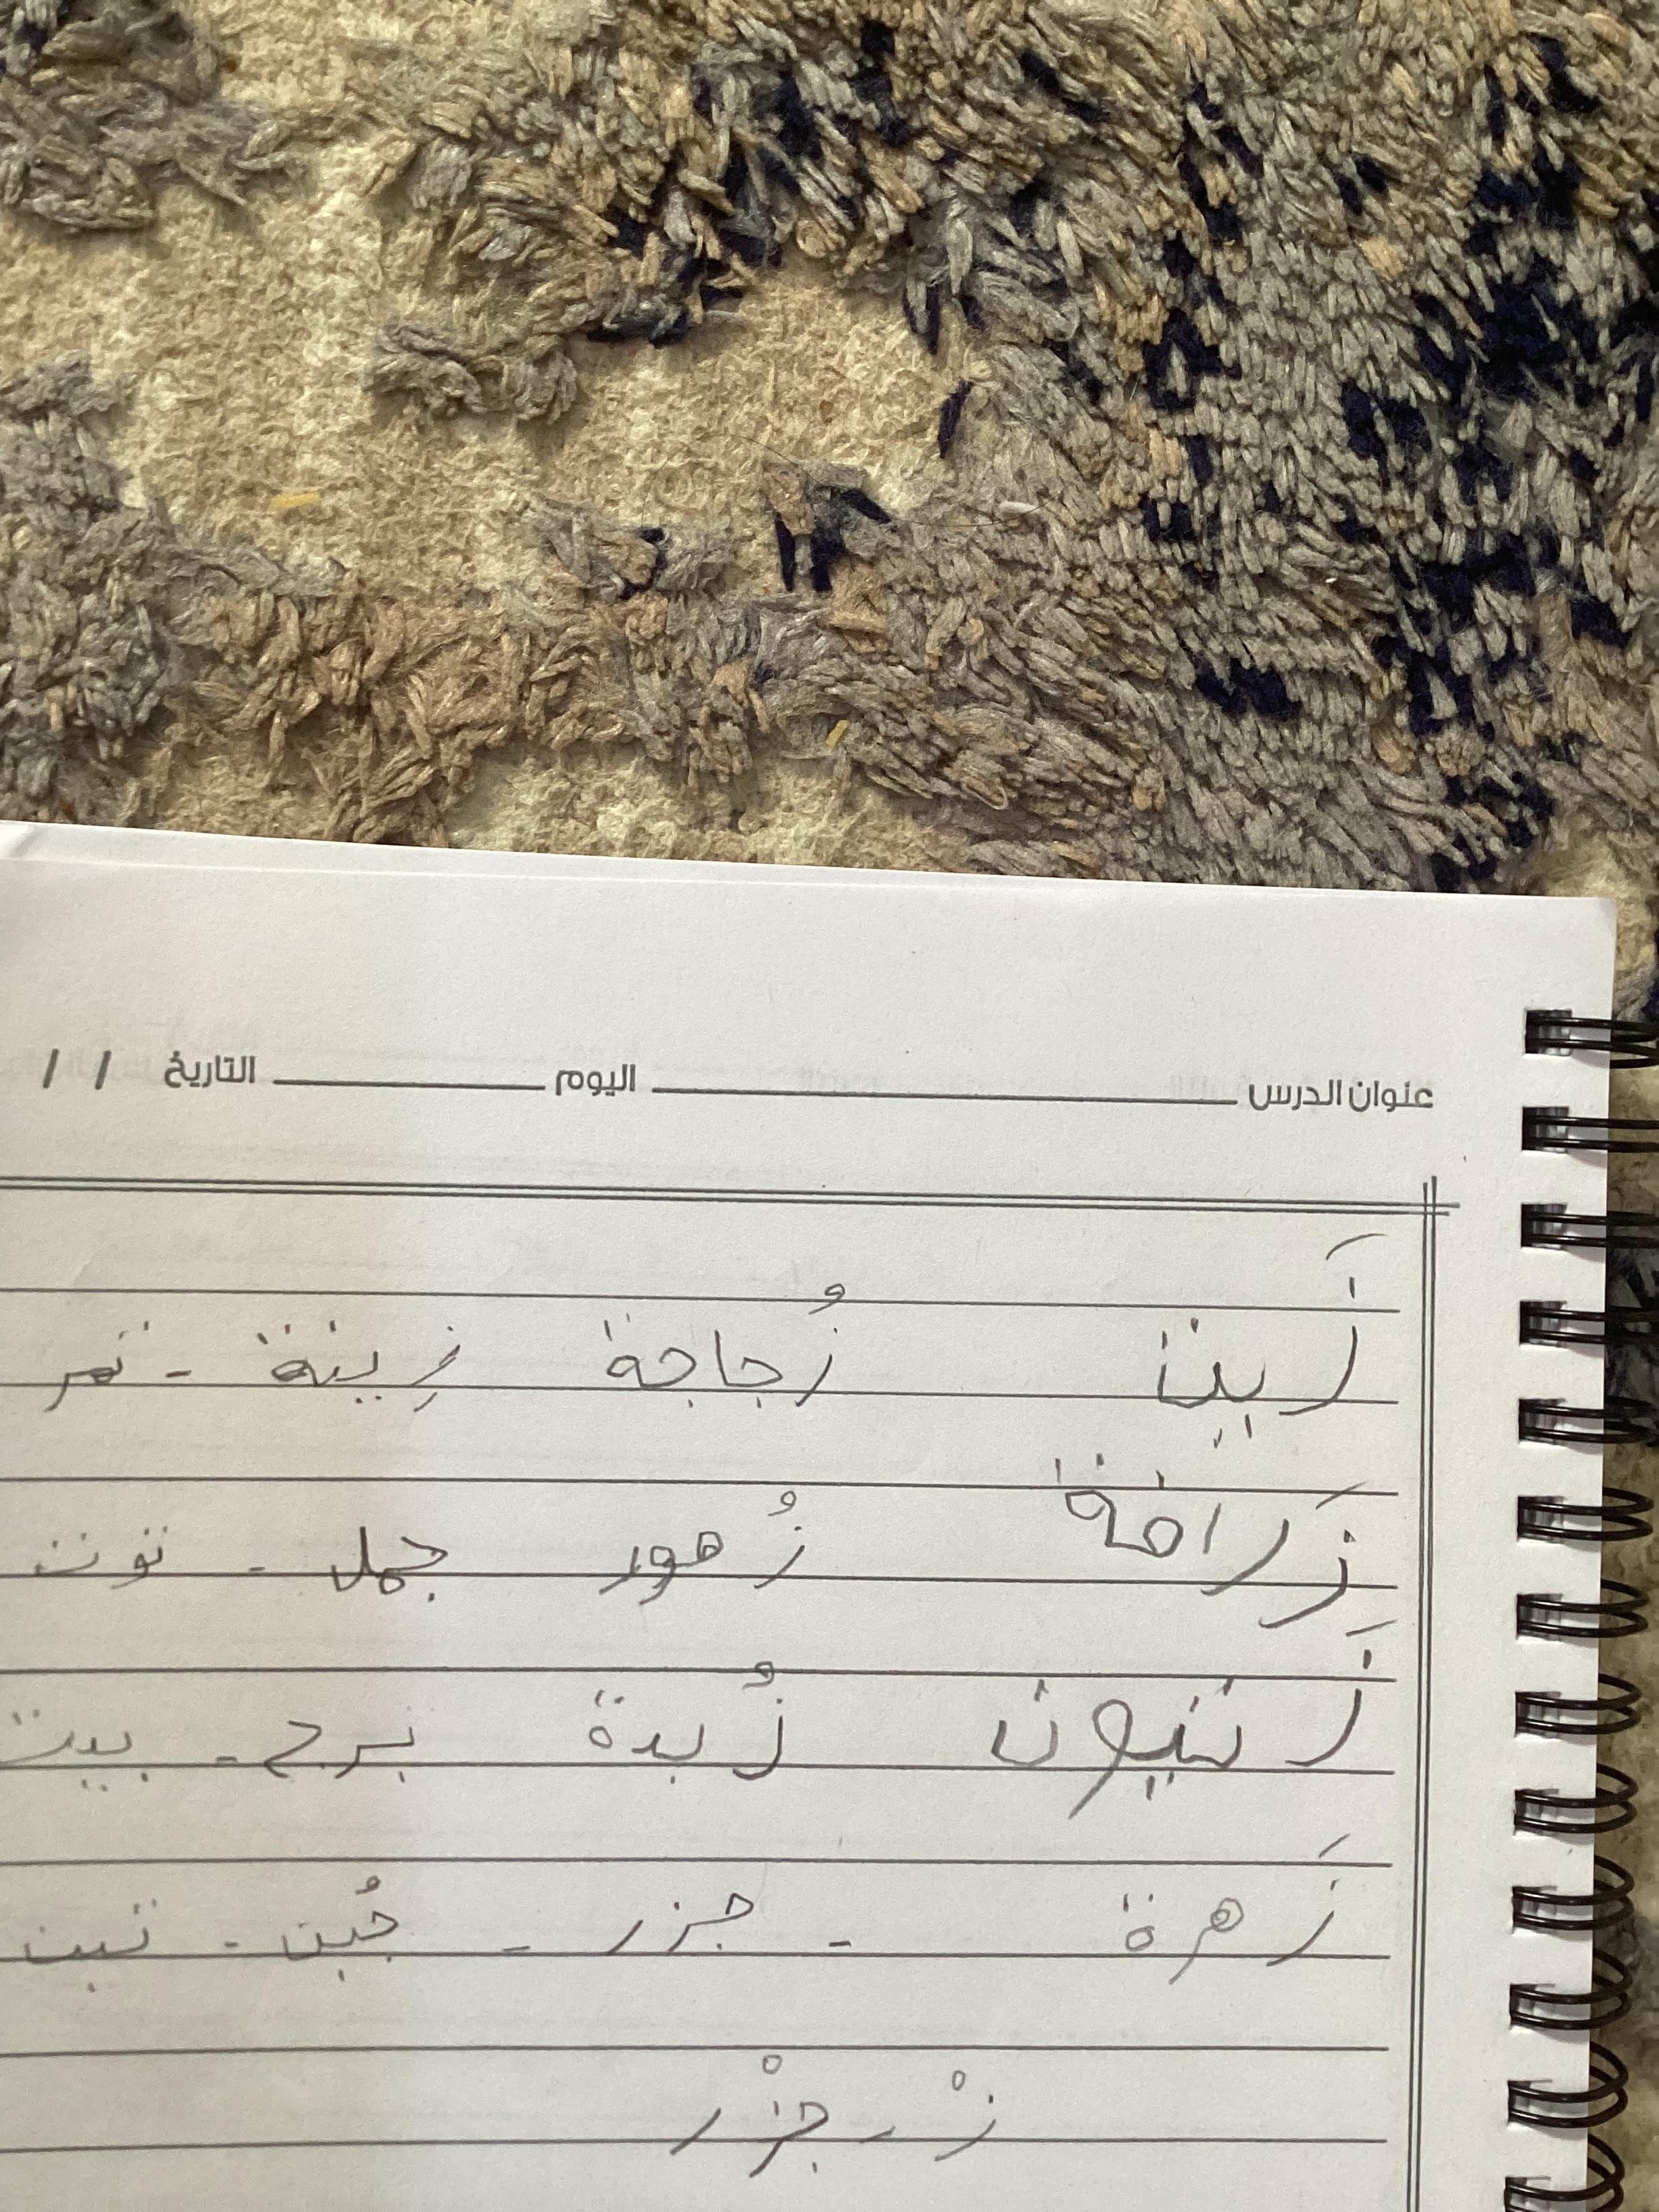 عنوان الدرس اليوم التاريخ / /
زَيت زُجاجة زِينة - تمر
زَرافة زُهور جمل - توت
زَيتون زُبدة برج - بيت
زَهرة - جزر - جُبن - تبن
زْ - جزْر